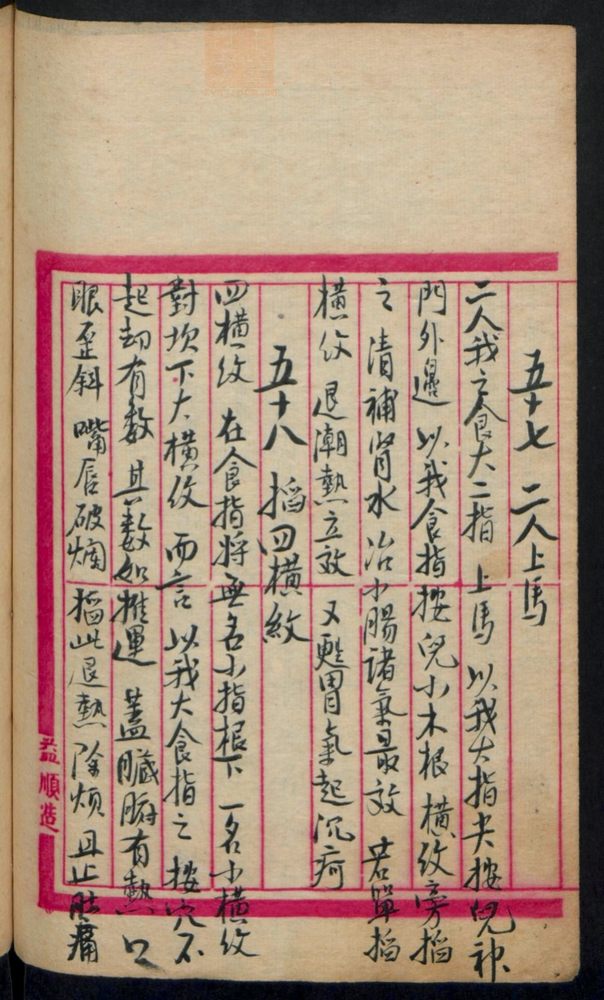 五十七 二人上馬
二人我之食大二指 上馬 以我大指尖按兒神
門外邊 以我食指按兒小木根 橫紋旁 掐
之 清補腎水 治小腸諸氣最效 若單掐
橫紋 退潮熱立效 又甦胃氣 起沉疴
五十八 掐四橫紋
四橫紋 在食指將無名小指根下 一名小橫紋
對坎下大橫紋 而言 以我大食指之 按穴不
起却有數 其數如推運 蓋臟腑有熱 口
眼歪斜 嘴唇破爛 掐此退熱 除煩 且止肚痛
益順造